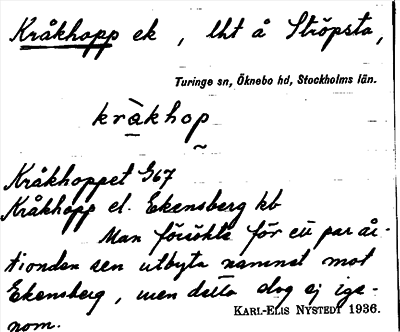 Kråkhopp ek, lht å Ströpsta,
Turinge sn, Öknebo hd, Stockholms län.
kràkhop
~
Kråkhoppet G67
Kråkhopp el. Ekensberg kb
Man försökte för ett par år-
tionden sen utbyta namnet mot
Ekensberg, men detta dog ej ige-
nom.
KARL-ELIS NYSTEDT 1936.